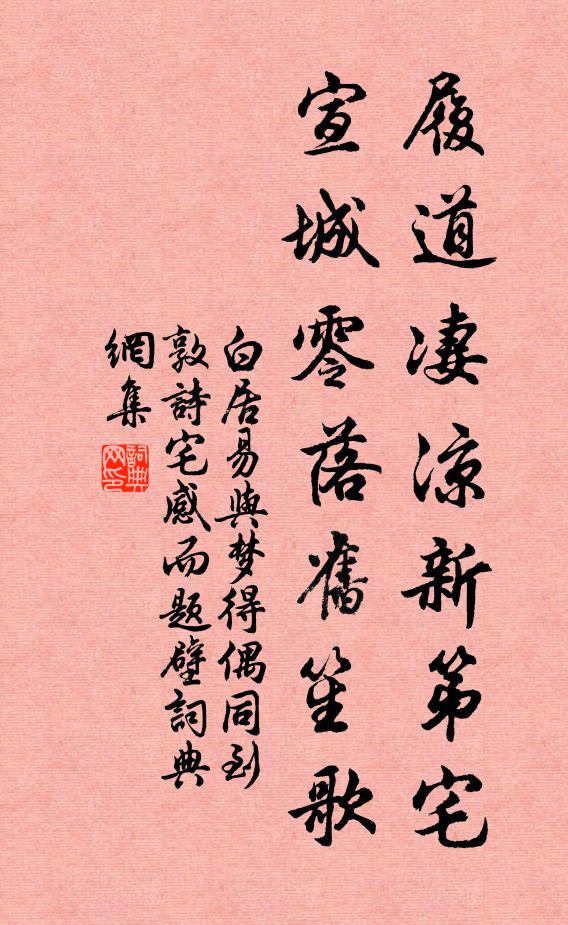 履道凄涼新第宅
宣城零落舊笙歌
白居易與梦得偶同到
敦詩宅感而題壁詞典
網集
詞典
网印